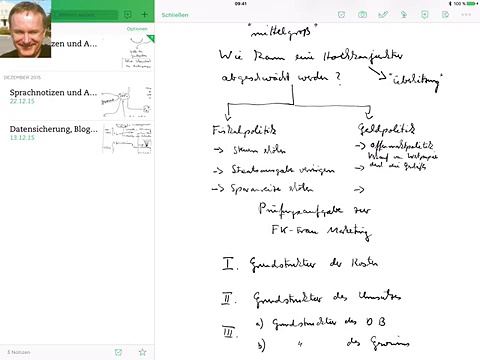 09:41
100 %
Schließen
Optionen
zen und A...
DEZEMBER 2015
Sprachnotizen und A...
22.12.15
Datensicherung, Blog...
13.12.15
5 Notizen
"mittelgroß"
Wie kann eine Hochkonjunktur
abgeschwächt werden?
"Überhitzung"
Fiskalpolitik
Geldpolitik
-> Steuern erhöhen
-> Offenmarktpolitik
-> Staatsausgaben verringern
-> Sparanreize erhöhen
Prüfungsaufgabe zur
FK-Frau Marketing
I. Grundstruktur der Kosten
II. Grundstruktur des Umsatzes
III a) Grundstruktur des DB
b) " des Gewinns